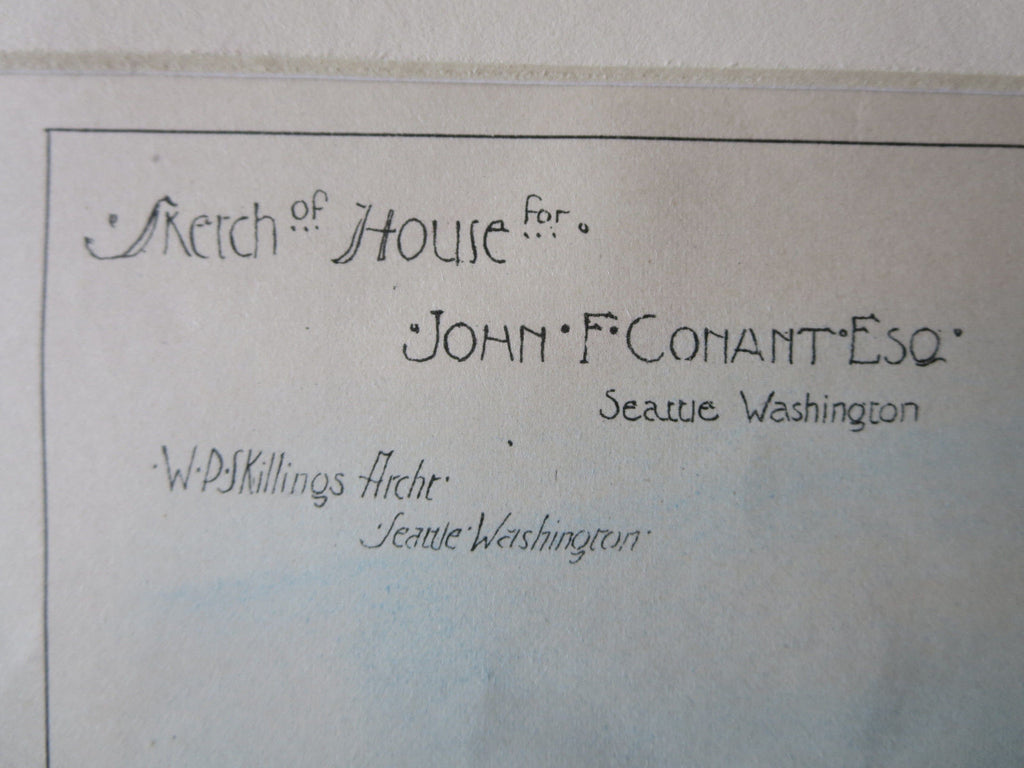 ·Sketch of House for·
·John·F·Conant·Esq·
Seattle Washington
·W·P·Skillings Archt·
·Seattle·Washington·